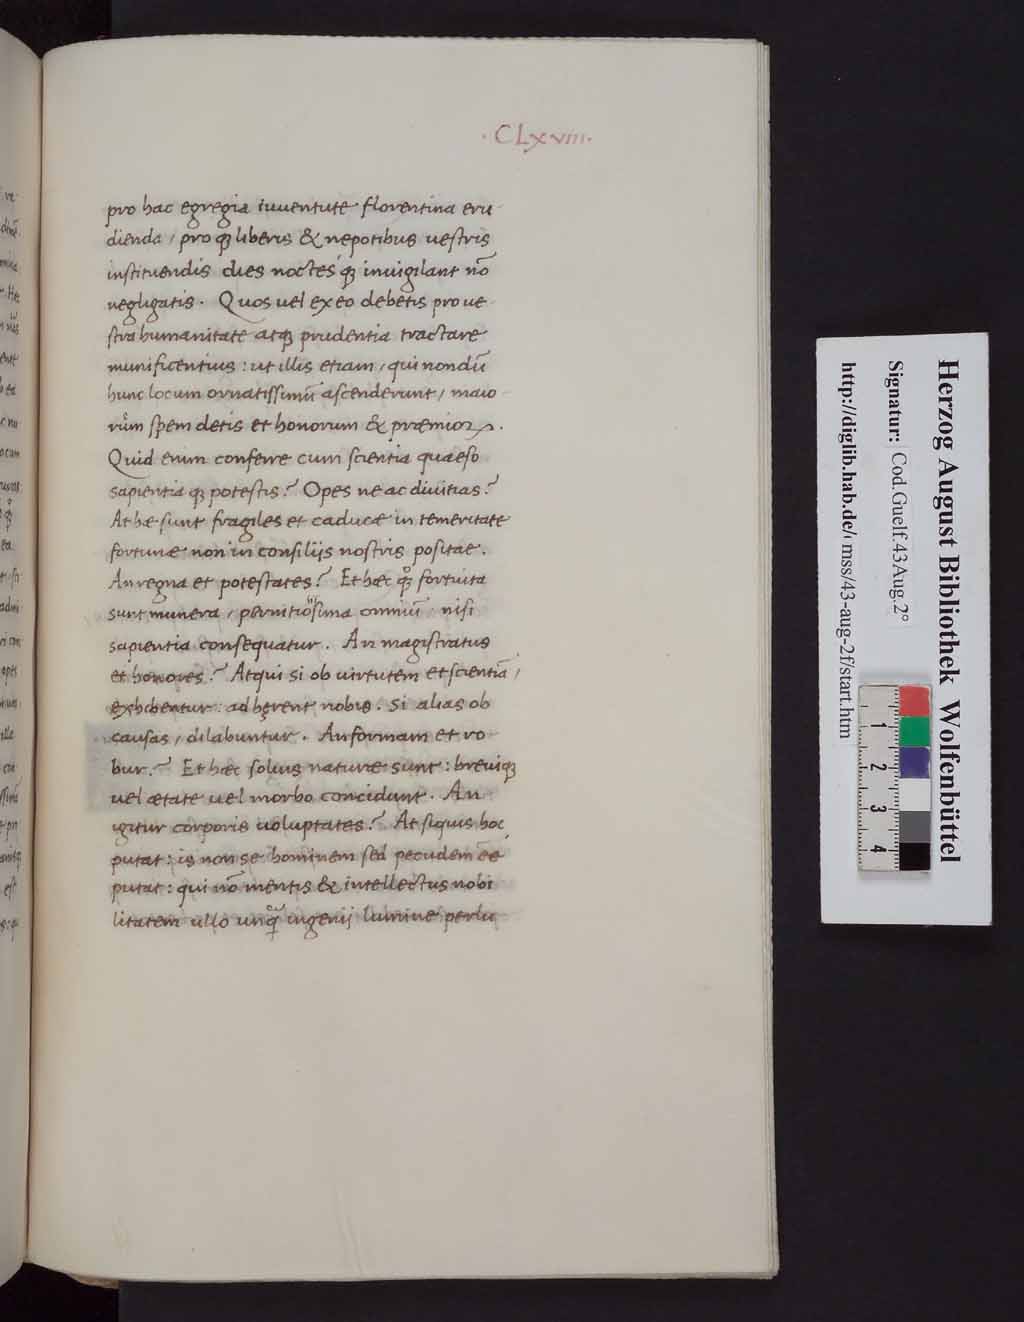 · CLxviii ·
pro hac egregia iuuentute florentina eru
dienda / pro qꝫ liberis & nepotibus uestris
instituendis dies noctes qꝫ inuigilant nō
negligatis . Quos uel ex eo debetis pro ue
stra humanitate atqꝫ prudentia tractare
munificentius : ut illis etiam / qui nondū
hunc locum ornatissimū ascenderunt / maio
rum spem detis et honorum & præmioꝝ .
Quid enim conferre cum scientia quaeso
sapientia qꝫ potestis ? Opes ne ac diuitias ?
At hæ sunt fragiles et caducæ in temeritate
fortunæ non in consilijs nostris positae .
An regna et potestates ? Et hæc qꝫ fortuita
sunt munera / pernitiosissima omniū / nisi
sapientia consequatur . An magistratus
et honores ? Atqui si ob uirtutem et scientiā /
exhibentur : adhęrent nobis . Si alias ob
causas / dilabuntur . An formam et ro
bur ? Et hæc solius naturæ sunt : breuiqꝫ
uel ætate uel morbo concidunt . An
igitur corporis uoluptates ? At siquis hoc
putat : is non se hominem sed pecudem ēe
putat : qui nō mentis & intellectus nobi
litatem ullo unq̄ ingenij lumine perlu
ve
Herzog August Bibliothek Wolfenbüttel
Signatur: Cod.Guelf.43Aug.2°
http://diglib.hab.de/ mss/43-aug-2f/start.htm
1 2 3 4